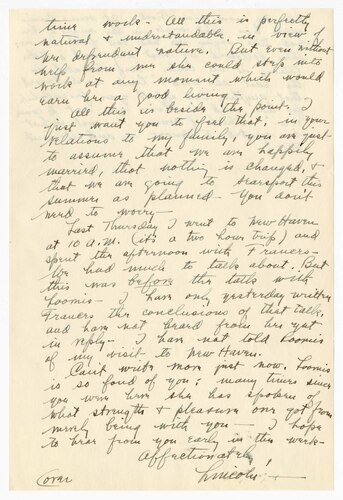 time work - All this is perfectly
natural & understandable, in view of
her dependant nature. But even without
help from me she could step into
work at any moment which would
earn her a good living -
All this is beside the point. I
just want you to feel that, in your
relations to my family, you are just
to assume that we are happily
married, that nothing is changed, &
that we are going to Searsport this
summer as planned - You don't
need to worry -
Last Thursday I went to New Haven
at 10 A.M. (it's a two hours trip) and
spent the afternoon with Frances -
We had much to talk about. But
this was before the talks with
Loomis - I have only yesterday written
Frances the conclusions of that talk,
and have not heard from her yet
in reply - I have not told Loomis
of my visit to New Haven.
Can't write more just now. Loomis
is so fond of you; many times since
you were here she has spoken of
what strength & pleasure one got from
merely being with you - I hope
to hear from you early in the week -
Affectionately
Lincoln! -
(over